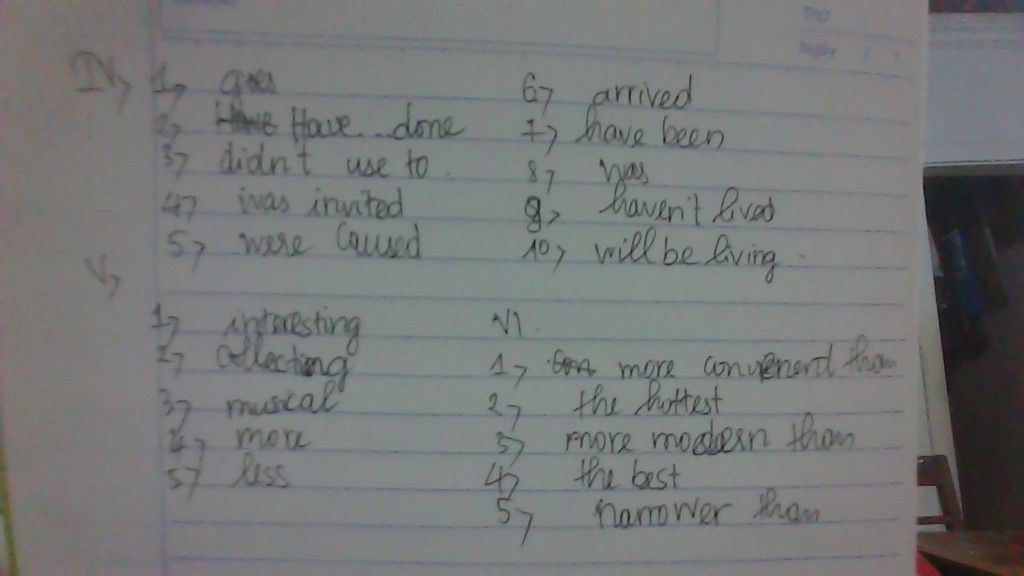 Thứ
Ngày
IV, 1, goes
2, Have Have...done
3, didn't use to.
4, was invited
5, were caused
6, arrived
7, have been
8, was
9, haven't lived
10, will be living.
V,
1, interesting
2, collecting
3, musical
4, more
5, less
VI.
1, more convenerd than
2, the hottest
3, more modern than
4, the best
5, narrower than